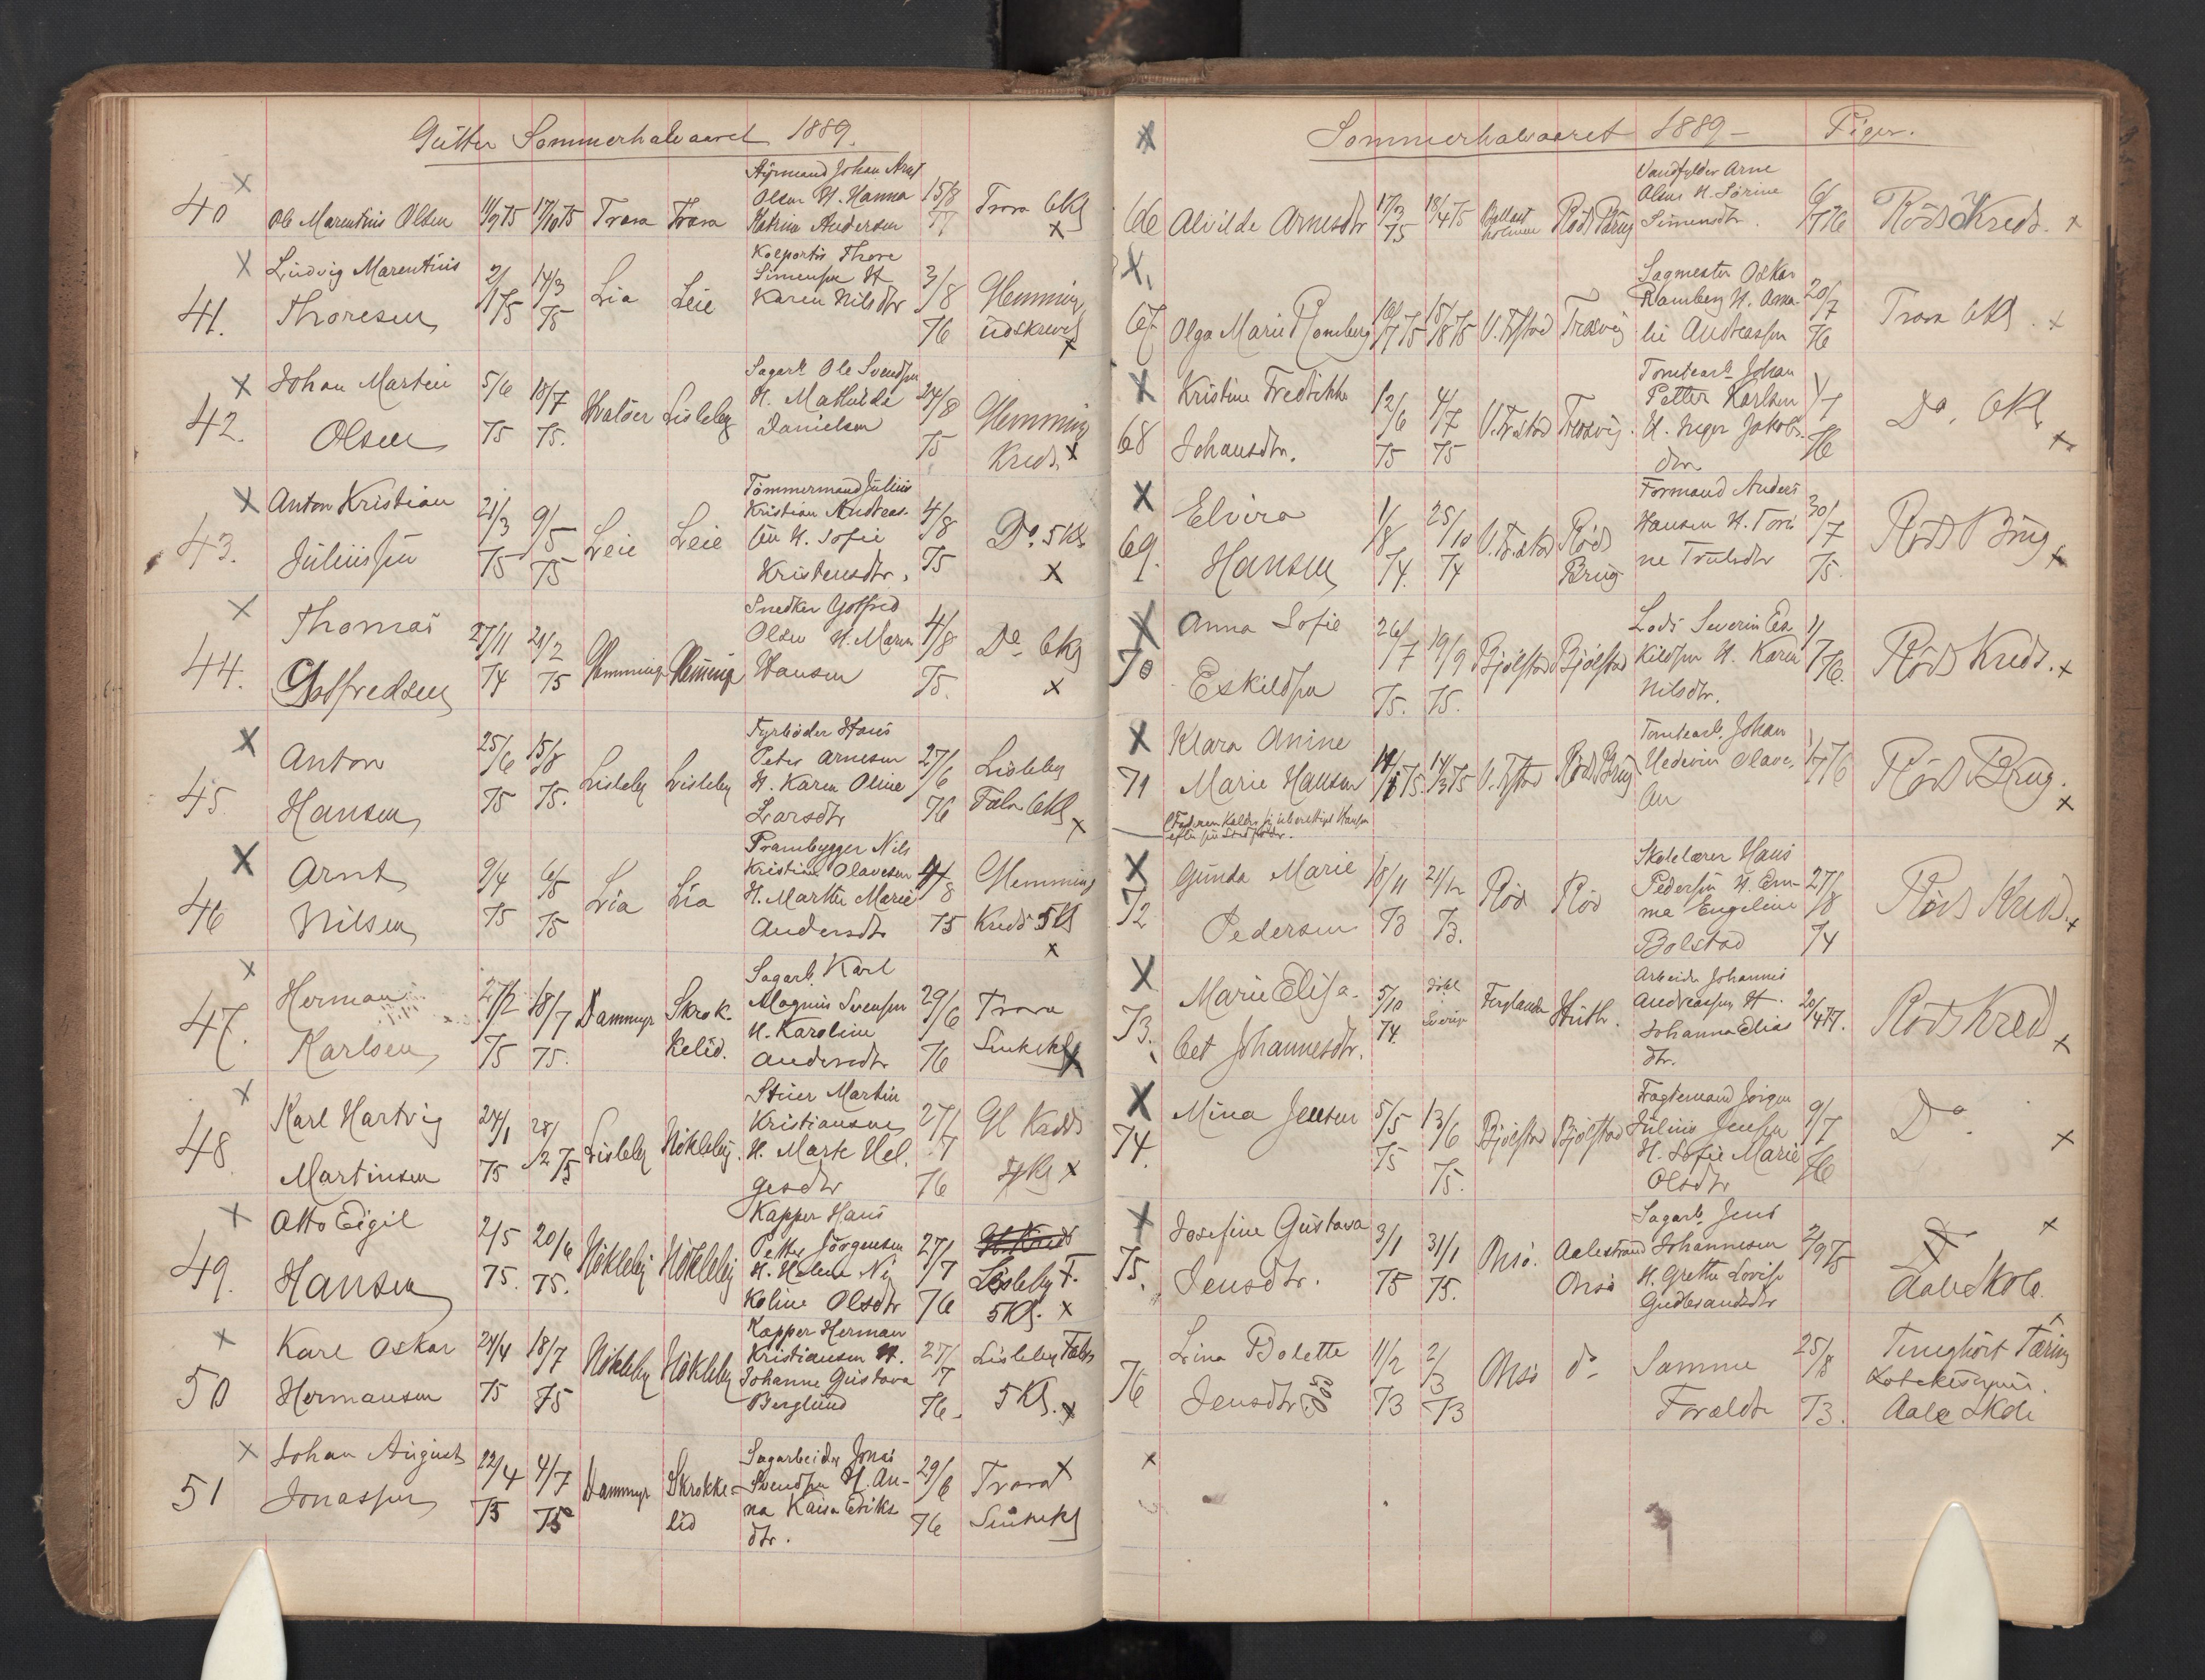 Gutter Sommerhalvaaret 1889.
40 Ole Marentius Olsen 11/9 75 17/10 75 Trara Trara
Styrmand Johan Arnt
Olsen H. Hanna
Katrine Andersen
15/8 77
Trara 6Kl
41. Ludvig Marentius
Thoresen
2/1 75 14/3 75 Lia Leie
Kolportør Thore
Simensen H
Karen Nilsdtr
3/8 76
Glemming
udskrevet
42. Johan Martin
Olsen
5/6 75 18/7 75. Hvaløer Lisleby
Sagarb Ole Svendsen
H. Mathilda
Danielsen
24/8 75
Glemming
Kreds
43. Anton Kristian
Juliussen
21/3 75 9/5 75 Leie Leie
Tømmermand Julius
Kristian Andreas-
sen H. Sofie
Kristensdtr,
4/8 75
Do. 5Kl
44. Thomas
Gotfredsen
27/11 74 21/2 75 Glemminge Glemminge
Snedker Gotfred
Olsen H. Maren
Hansen
4/8 75.
Do 6Kl
45 Anton
Hansen
25/6 75 15/8 75. Lisleby Lisleby
Fyrbøder Hans
Peter Arnesen
H. Karen Oline
Larsdtr
27/6 76
Lisleby
Fabr. 6Kl
46 Arnt
Nilsen
9/4 75 6/5 75 Lia Lia
Prambygger Nils
Kristian Olavesen
H. Marthe Marie
Andersdtr
4/8 75
Glemming
Kreds 5Kl
47. Herman
Karlsen
27/2 75 18/7 75. Dammyr Skrok-
kelid.
Sagarb. Karl
Magnus Svensen
H. Karoline
Andersdtr
29/6 76
Trara
48. Karl Hartvig
Martinsen
24/1 75 28/2 75 Lisleby Nökleby.
Stuer Martin
Kristiansen
H. Marte Hel-
gesdtr
27/7 76
Gl Kreds
49. Otto Eigil
Hansen
2/5 75. 20/6 75. Nökleby Nökleby
Kapper Hans
Petter Jörgensen
H. Helene Ni-
koline Olsdtr
27/7 76
Gl. Kreds
Lisleby F.
5Kl.
50 Karl Oskar
Hermansen
24/4 75 18/7 75 Nökleby Nökleby
Kapper Herman
Kristiansen H.
Johanne Gustava
Berglund
27/7 76.
Lisleby Fabr
5Kl.
51 Johan August
Jonassen
22/4 75 4/7 75 Dammyr Skrokke-
lid
Sagarbeider Jonas
Svendsen H. An-
na Kaisa Eriks
dtr.
29/6 76
Trara
Sommerhalvaaret 1889- Piger.
66 Alvilde Arnesdtr 17/3 75 18/4 75 Ballast
holmen Röds Brug
Vandfylder Arne
Olsen H. Sörine
Simensdtr.
6/7 76
Röds Kreds.
67 Olga Marie Ramberg 10/7 75 15/8 75 V. Frstad Trosvig
Sagmester Oskar
Ramberg H. Ama-
lie Andreassen
20/7 76
Trara 6Kl.
68 Kristine Fredrikke
Johansdtr.
12/6 75 4/7 75 V. Fr.stad Trosvig.
Tomtearb. Johan
Petter Karlsen
H. Inger Jakobs-
dtr
1/7 76
Do. 6Kl
69. Elvira
Hansen
1/8 74. 25/10 74 V. Fr.stad Röds
Brug
Formand Anders
Hansen H. Tori-
ne Trulsdtr
30/7 75.
Röds Brug
70 Anna Sofie
Eskildsen
26/7 75. 19/9 75. Bjölstad Bjölstad
Lods Severin Es
kildsen H. Karen
Nilsdtr.
1/7 76.
Röds Kreds.
71 Klara Anine
Marie Hansen
14/1 75 14/3 75 V. Frstad Röds Brug
Tomtearb. Johan
Hedevin Olave-
sen
1/7 76
Röds Brug.
72 Gunda Marie
Pedersen
18/11 73 21/12 73. Röd Röd
Skolelærer Hans
Pedersen H. Em-
ma Engeline
Bolstad
27/8 74
Röds Kreds.
73. Marie Elisa-
bet Johannesdtr.
5/10 74.
Arbeider Johannes
Andreassen H.
Johanna Elias
dtr.
20/4 77.
Röds Kreds
74. Mina Jensen 5/5 75 13/6 75. Bjölstad Bjölstad
Fragtemand Jörgen
Julius Jensen
H. Sofie Marie
Olsdtr
9/7 76
Do.
75. Josefine Gustava
Jensdtr.
3/1 75 31/1 75. Onsö. Aalestrand
Onsö
Sagarb. Jens
Johannesen
H. Grethe Lovise
Gudbrandsdtr
2/9 75
Aale Skole.
76 Lina Bolette
Jensdtr
11/2 73 2/3 73 Onsö do
Samme
Forældre
25/8 73.
Aale Skole